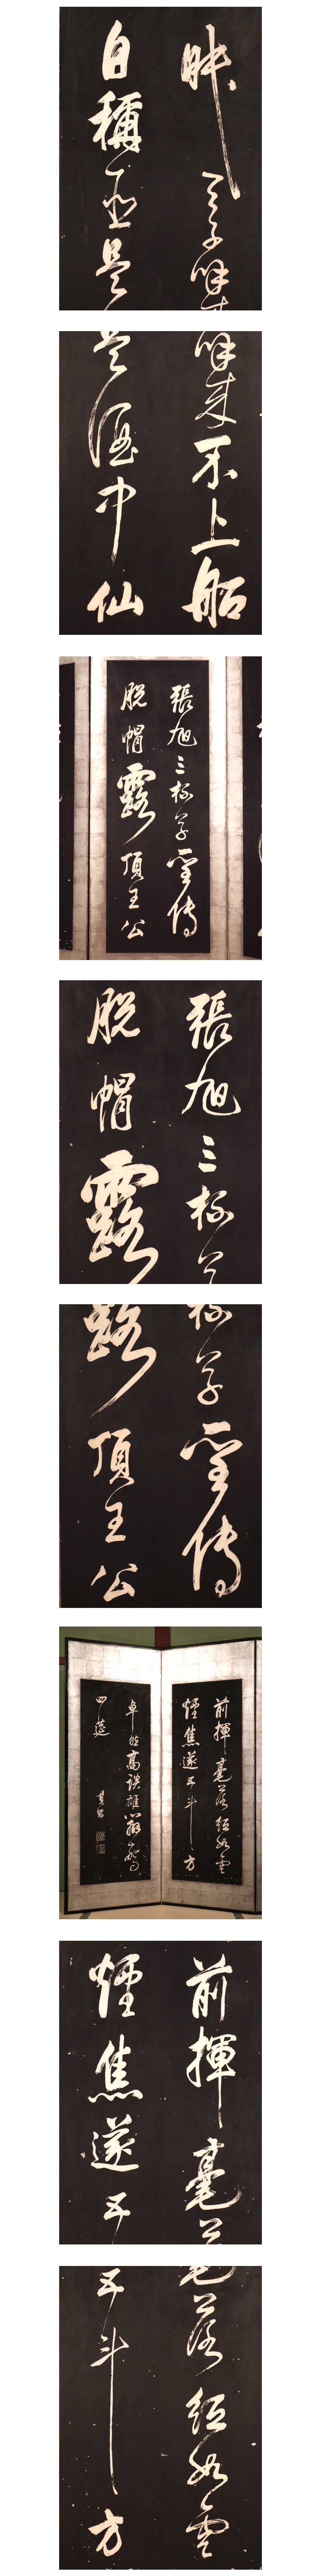 眠天子呼來
自稱臣是
呼來不上船
是酒中仙
張旭三杯草聖傳
脫帽露頂王公
張旭三杯草
脫帽露
杯草聖傳
露頂王公
前揮毫落紙如雲
煙焦遂五斗方
卓然高談雄辯驚
四筵
其昌
前揮毫
煙焦遂五
毫落紙如雲
五斗方